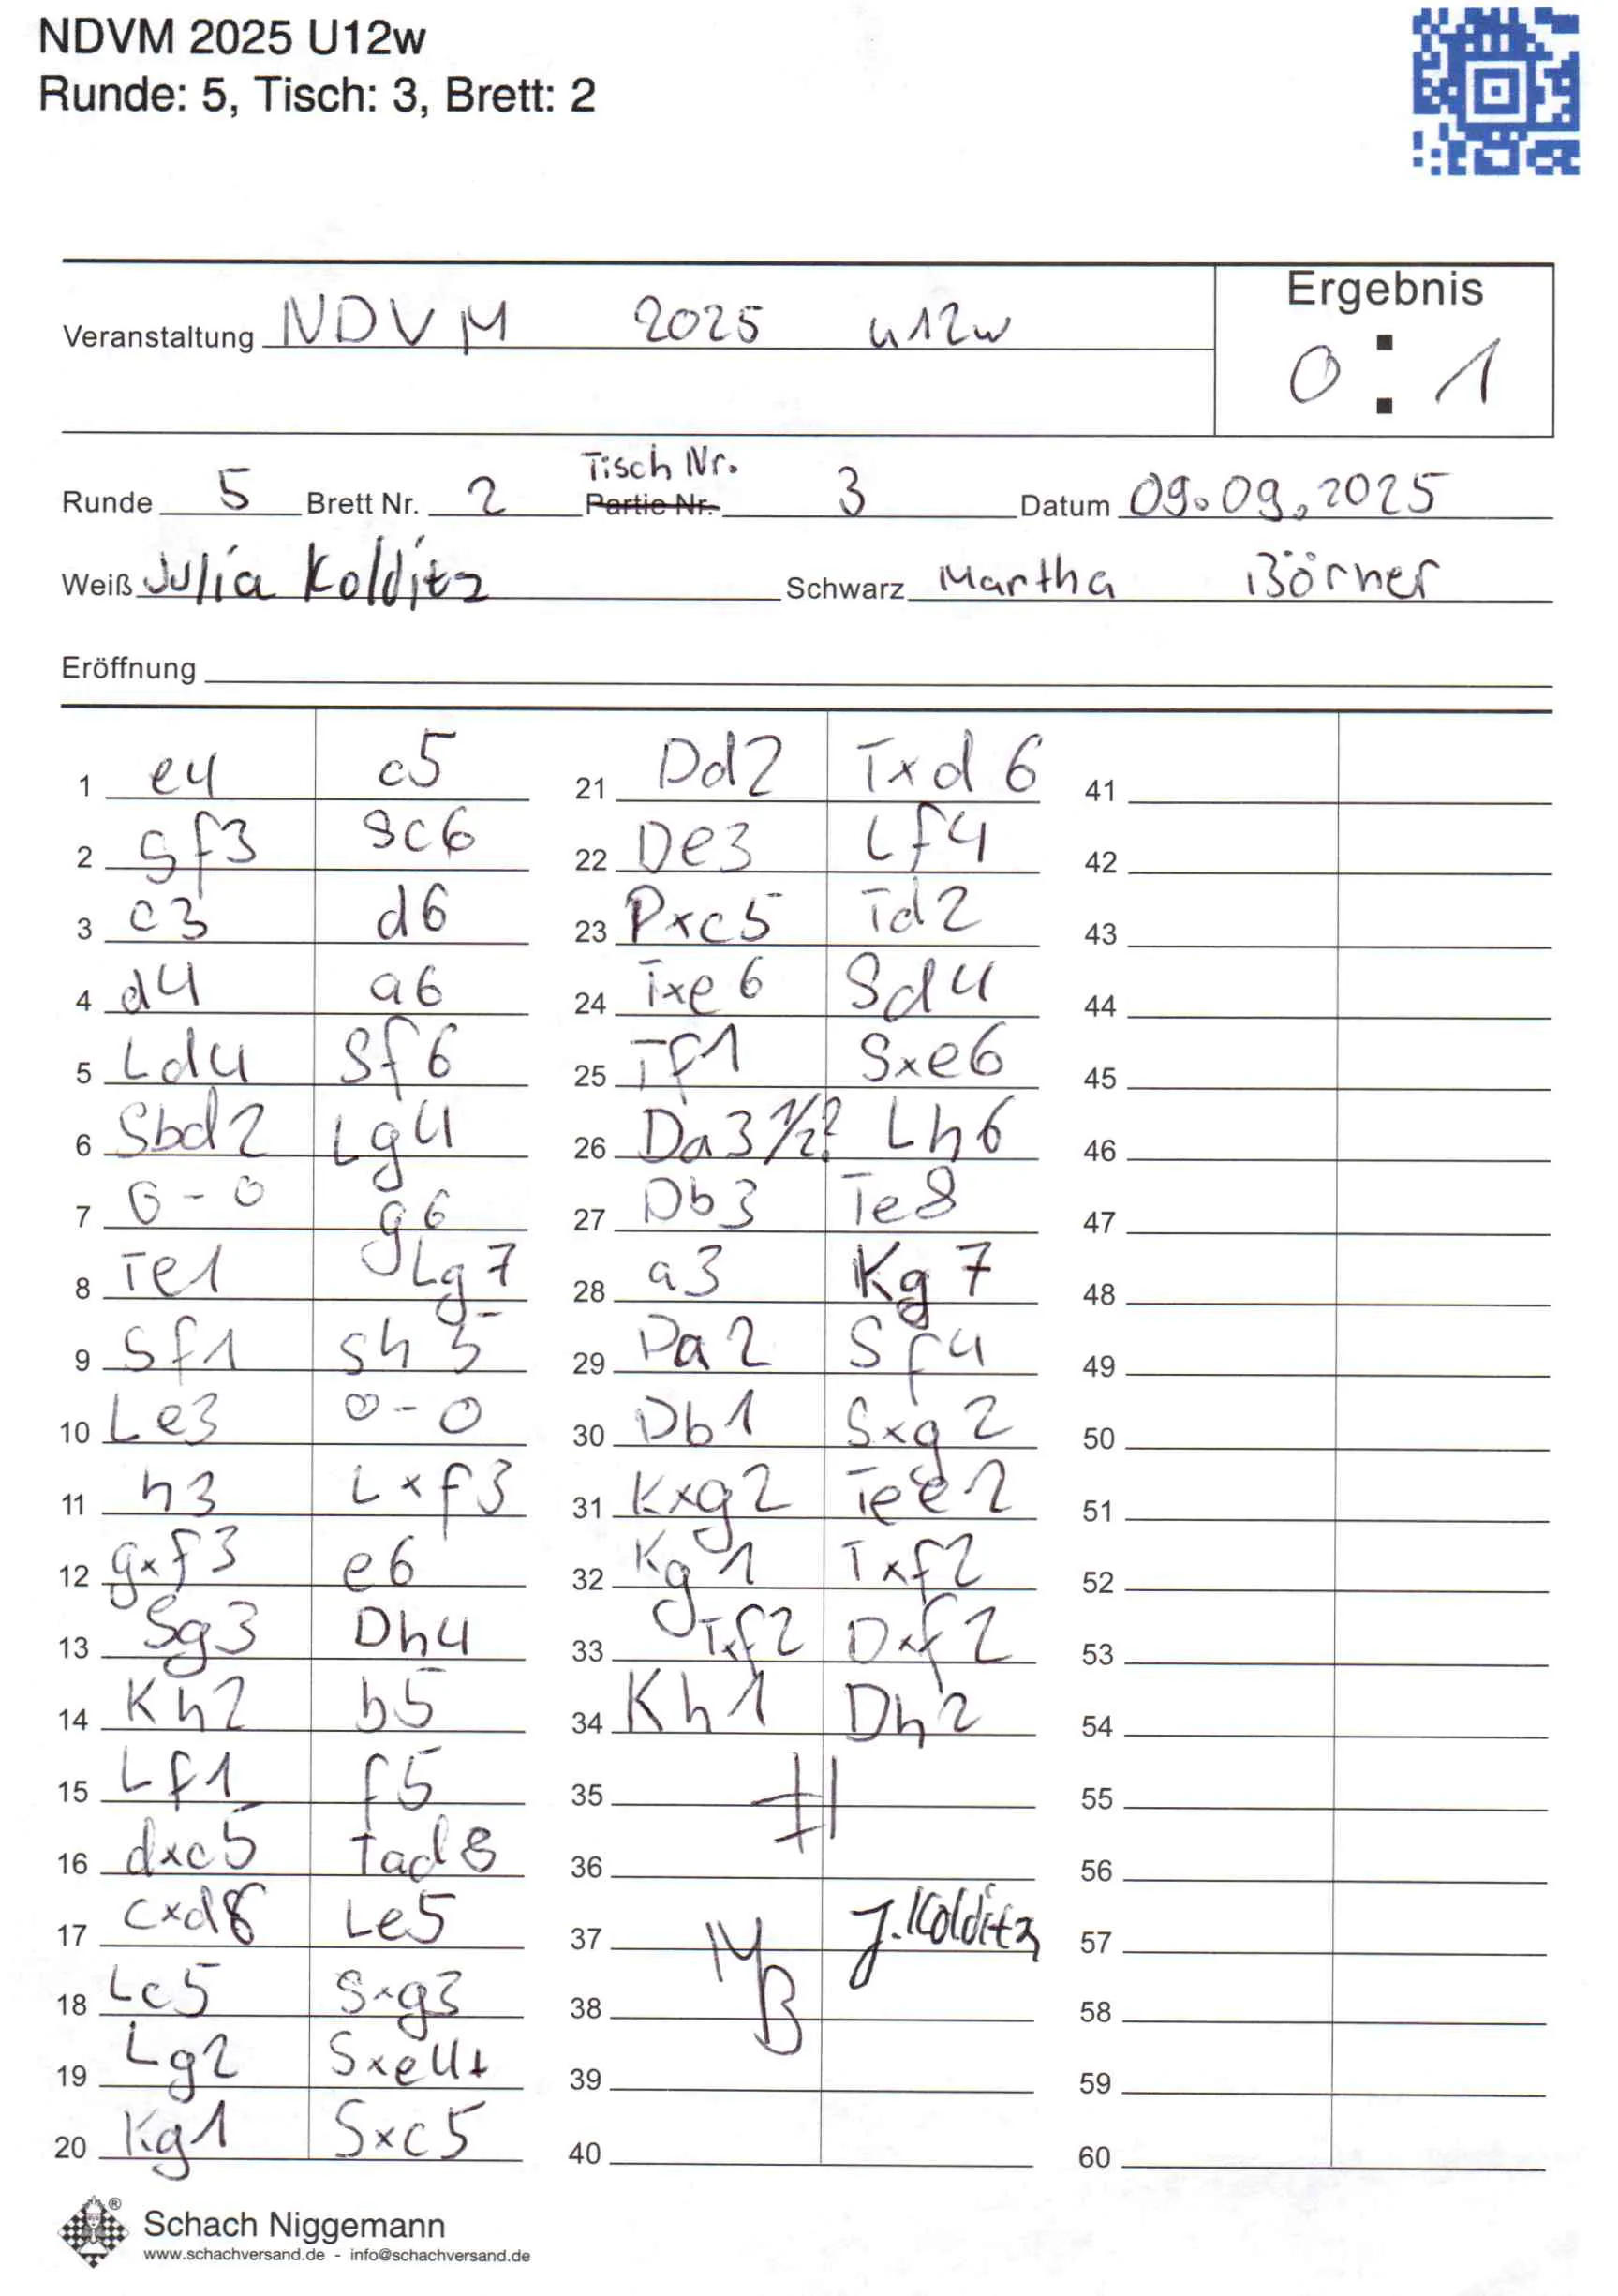 NDVM 2025 U12w
Runde: 5, Tisch: 3, Brett: 2
Ergebnis
Veranstaltung NDVM 2025 u12w
0 : 1
Tisch Nr.
Runde 5 Brett Nr. 2 Partie Nr. 3 Datum 09.09.2025
Weiß Julia Kolditz Schwarz Martha Börner
Eröffnung
1 e4 c5
2 Sf3 Sc6
3 c3 d6
4 d4 a6
5 Ld4 Sf6
6 Sbd2 Lg4
7 0-0 g6
8 Te1 Lg7
9 Sf1 Sh5
10 Le3 0-0
11 h3 Lxf3
12 gxf3 e6
13 Sg3 Dh4
14 Kh2 b5
15 Lf1 f5
16 dxc5 Tad8
17 cxd8 Le5
18 Lc5 Sxg3
19 Lg2 Sxe4+
20 Kg1 Sxc5
21 Dd2 Txd6
22 De3 Lf4
23 Dxc5 Td2
24 Txe6 Sd4
25 Tf1 Sxe6
26 Da3 1/2? Lh6
27 Db3 Te8
28 a3 Kg7
29 Da2 Sf4
30 Db1 Sxg2
31 Kxg2 Tee2
32 Kg1 Txf2
33 Txf2 Dxf2
34 Kh1 Dh2
35 #
36
37 MB J.Kolditz
38
39
40
41
42
43
44
45
46
47
48
49
50
51
52
53
54
55
56
57
58
59
60
Schach Niggemann
www.schachversand.de - info@schachversand.de